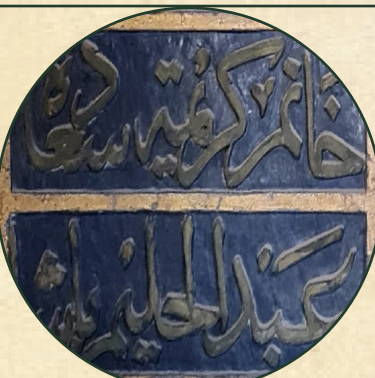 خانم كريمة سعادة
عبدالحليم باشا